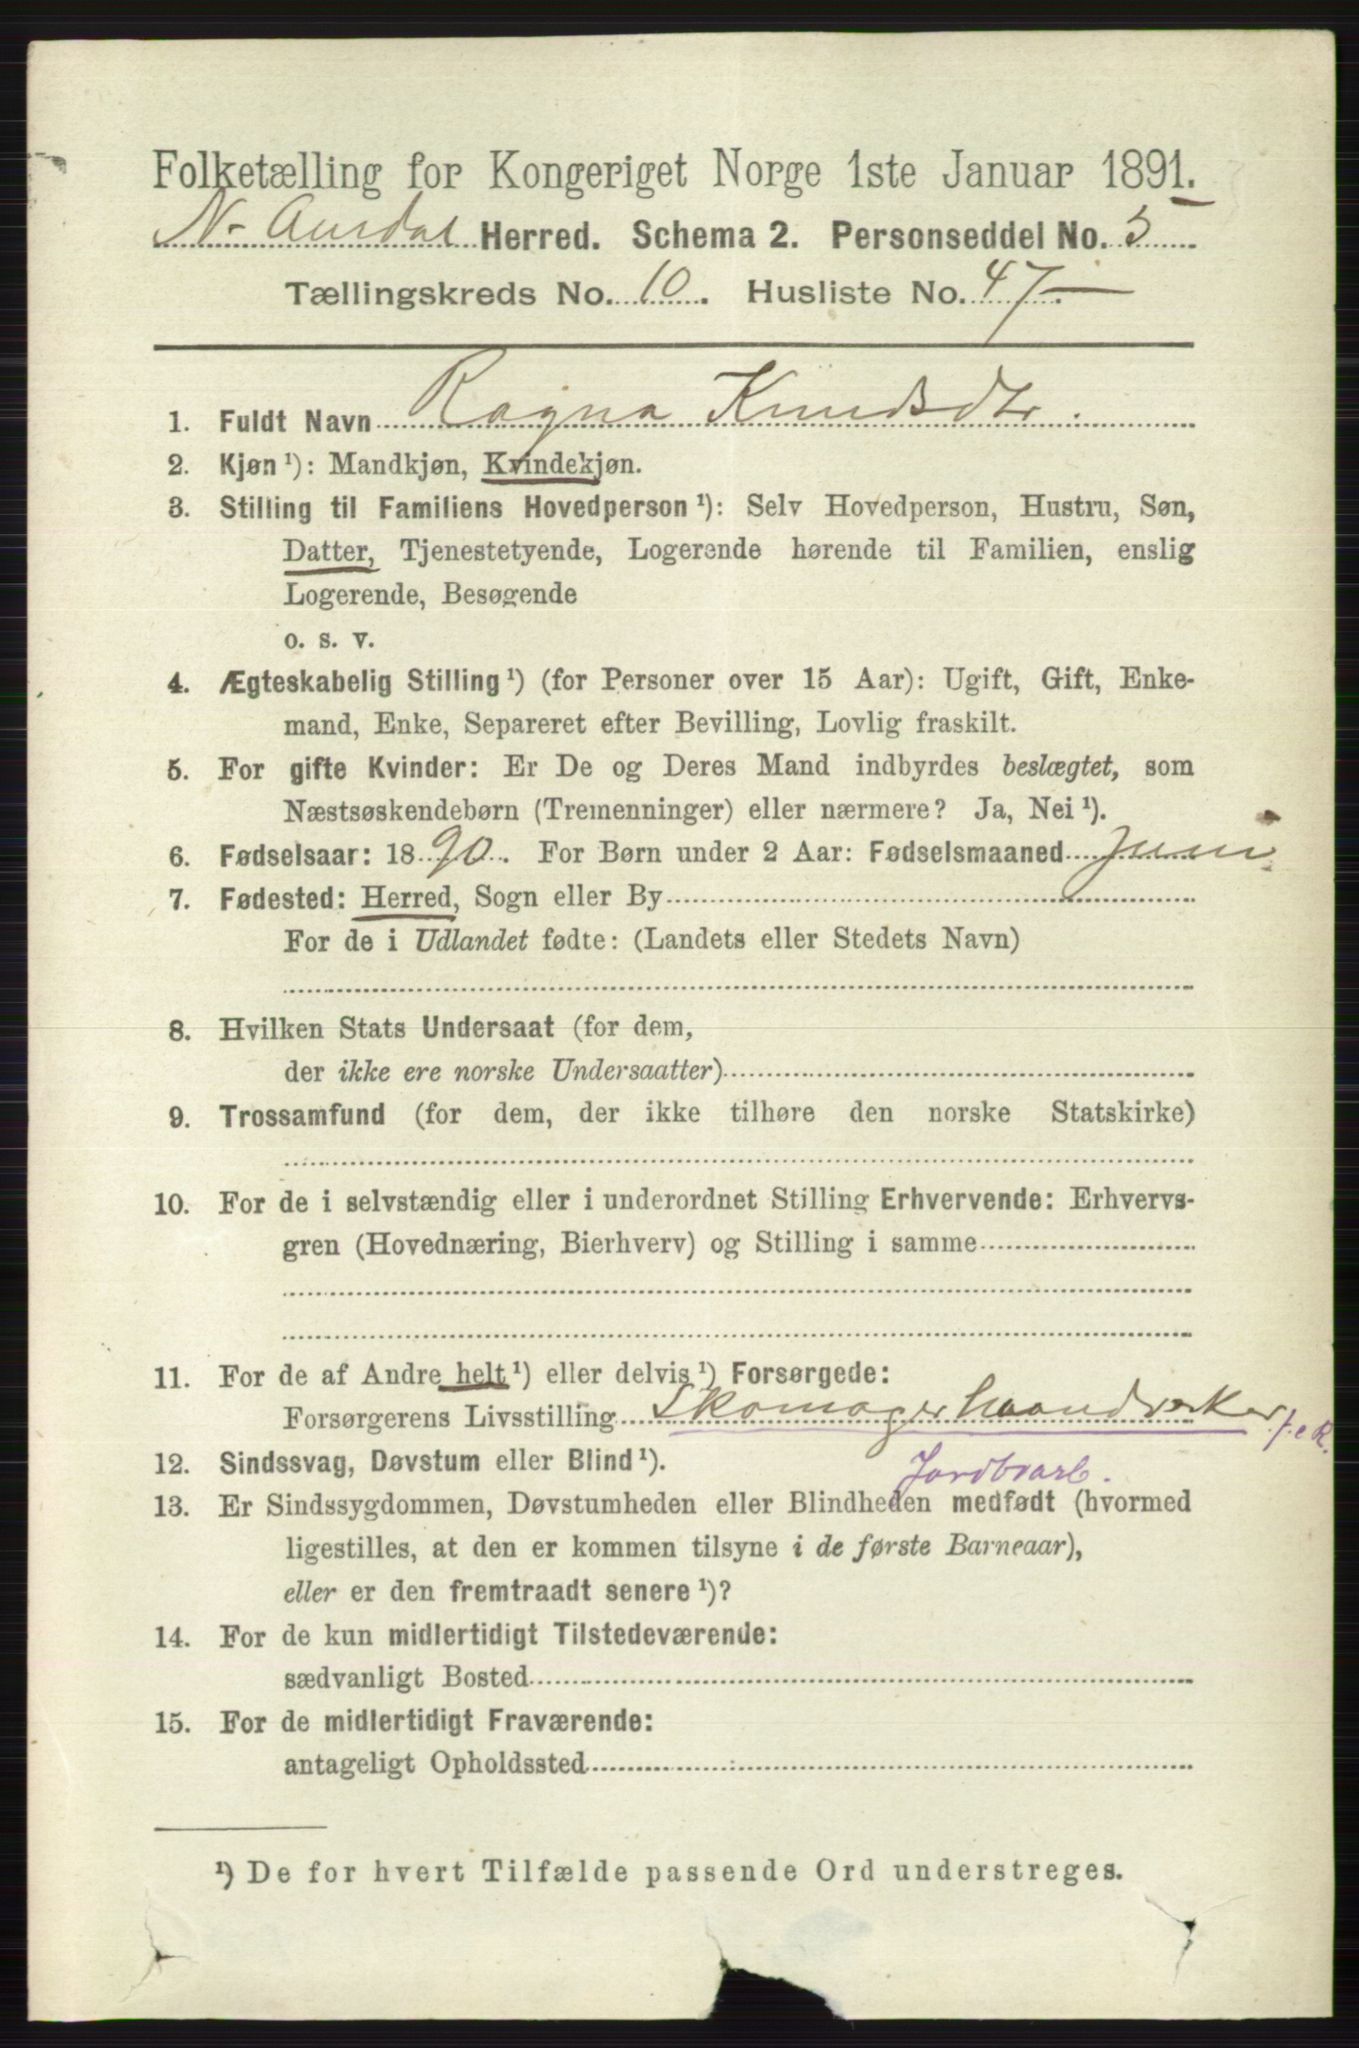 Folketælling for Kongeriget Norge 1ste Januar 1891.
N. Aurdal Herred. Schema 2. Personseddel No. 5
Tællingskreds No. 10. Husliste No. 47
1. Fuldt Navn Ragna Knudsdtr.
2. Kjøn ¹): Mandkjøn, Kvindekjøn.
3. Stilling til Familiens Hovedperson ¹): Selv Hovedperson, Hustru, Søn,
Datter, Tjenestetyende, Logerende hørende til Familien, enslig
Logerende, Besøgende
o. s. v.
4. Ægteskabelig Stilling ¹) (for Personer over 15 Aar): Ugift, Gift, Enke-
mand, Enke, Separeret efter Bevilling, Lovlig fraskilt.
5. For gifte Kvinder: Er De og Deres Mand indbyrdes beslægtet, som
Næstsøskendebørn (Tremenninger) eller nærmere? Ja, Nei ¹).
6. Fødselsaar: 1890. For Børn under 2 Aar: Fødselsmaaned Juni
7. Fødested: Herred, Sogn eller By
For de i Udlandet fødte: (Landets eller Stedets Navn)
8. Hvilken Stats Undersaat (for dem,
der ikke ere norske Undersaatter)
9. Trossamfund (for dem, der ikke tilhøre den norske Statskirke)
10. For de i selvstændig eller i underordnet Stilling Erhvervende: Erhvervs-
gren (Hovednæring, Bierhverv) og Stilling i samme
11. For de af Andre helt ¹) eller delvis ¹) Forsørgede:
Forsørgerens Livsstilling Skomager haandverker f.e.R.
Jordbrarb.
12. Sindssvag, Døvstum eller Blind ¹).
13. Er Sindssygdommen, Døvstumheden eller Blindheden medfødt (hvormed
ligestilles, at den er kommen tilsyne i de første Barneaar),
eller er den fremtraadt senere ¹)?
14. For de kun midlertidigt Tilstedeværende:
sædvanligt Bosted
15. For de midlertidigt Fraværende:
antageligt Opholdssted
¹) De for hvert Tilfælde passende Ord understreges.